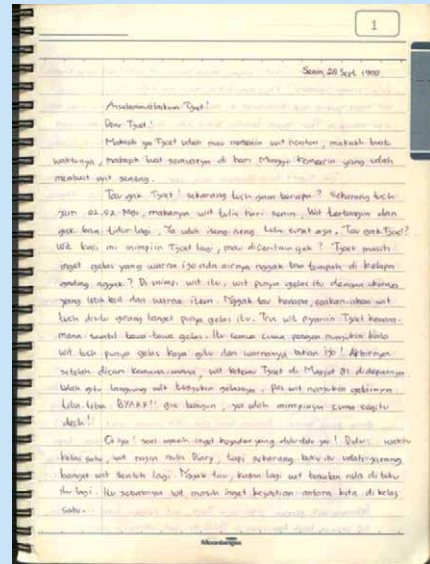 1
Senin, 28 Sept 1998
Assalamualaikum Tjoet!
Dear Tjoet!
Makasih ya Tjoet udah mau nemenin wit nonton, makasih buat
waktunya, makasih buat semuanya di hari Minggu kemarin yang udah
membuat wit seneng.
Tau gak Tjoet! sekarang tuch jam berapa? Sekarang tuch
jam 02.02 pagi, makanya wit tulis hari senin, wit terbangun dan
gak bisa tidur lagi. Ya udah iseng iseng tulis surat aja. Tau gak Tjoet?
wit kali ini mimpiin Tjoet lagi, mau diceritain gak? Tjoet masih
inget gelas yang warna ijo ada airnya nggak bisa tumpah di kelapa
gading nggak? Di mimpi wit itu, wit punya gelas itu dengan ukuran
yang lebih kecil dan warna item. Nggak tau kenapa, seakan-akan wit
tuch dulu girang banget punya gelas itu. Trus wit nyariin Tjoet kemana-
mana sambil bawa-bawa gelas. Itu semua cuma pengen nunjukin kalo
wit tuch punya gelas kaya gitu dan warnanya bukan ijo! Akhirnya
setelah dicari kemana-mana, wit ketemu Tjoet di Masjid
udah gitu langsung wit tunjukin gelasnya. Pas wit nunjukin gelasnya
tiba-tiba BYARR!! gue bangun, ya udah mimpinya cuma segitu
dech!
Oh ya! masih inget kejadian yang dulu-dulu ya! Dulu, waktu
kelas satu, wit rajin nulis Diary, tapi sekarang buku itu udah jarang
banget wit sentuh lagi. Nggak tau, kapan lagi wit bakalan nulis di buku
itu lagi. Itu sebabnya wit masih inget kejadian antara kita di kelas
satu.